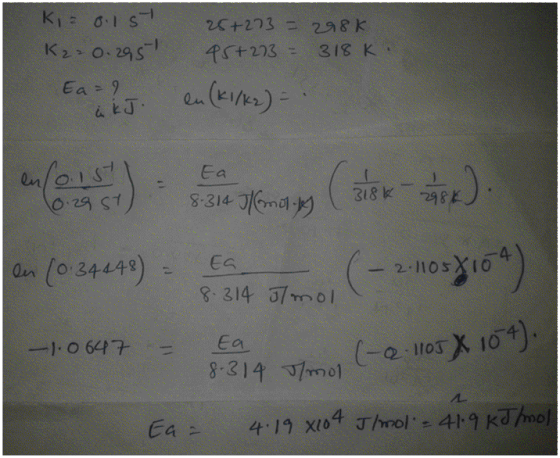 K1 = 0.1 S⁻¹ 25+273 = 298K
K2 = 0.29S⁻¹ 45+273 = 318 K.
Ea = ? in kJ. en(K1/K2) = .
en(0.1 S⁻¹/0.29 S⁻¹) = Ea/8.314 J/(mol.K) (1/318K - 1/298K).
en (0.34448) = Ea/8.314 J/mol (-2.1105 X 10⁻⁴)
-1.0647 = Ea/8.314 J/mol (-2.1105 X 10⁻⁴).
Ea = 4.19 X10⁴ J/mol. = 41.9 KJ/mol